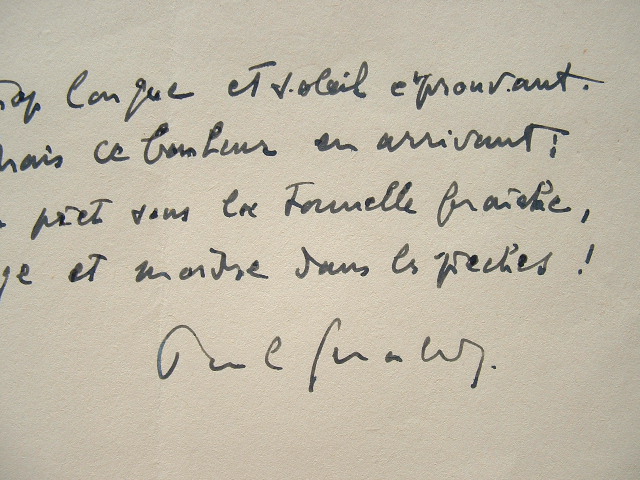 rop longue et soleil éprouvant.
Mais ce bonheur en arrivant !
prêt sous la tonnelle fraîche,
ge et mordre dans les pêches !
Paul Géraldy.